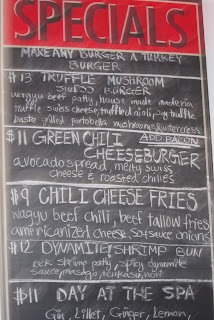 SPECIALS
MAKE ANY BURGER A TURKEY
BURGER
#13 TRUFFLE MUSHROOM
SWISS BURGER
wagyu beef patty, house made madeira
truffle swiss cheese, truffled aioli, soy truffle
paste grilled portobella mushrooms & watercress
$11 GREEN CHILI ADD BACON
CHEESEBURGER
avocado spread, melty swiss
cheese & roasted chilies
$9 CHILI CHEESE FRIES
wagyu beef chili, beef tallow fries
americanized cheese, soy sauce onions
#12 DYNAMITE! SHRIMP BUN
rock shrimp patty, spicy dynamite
sauce, masago,
$11 DAY AT THE SPA
Gin, Lillet, Ginger, Lemon,